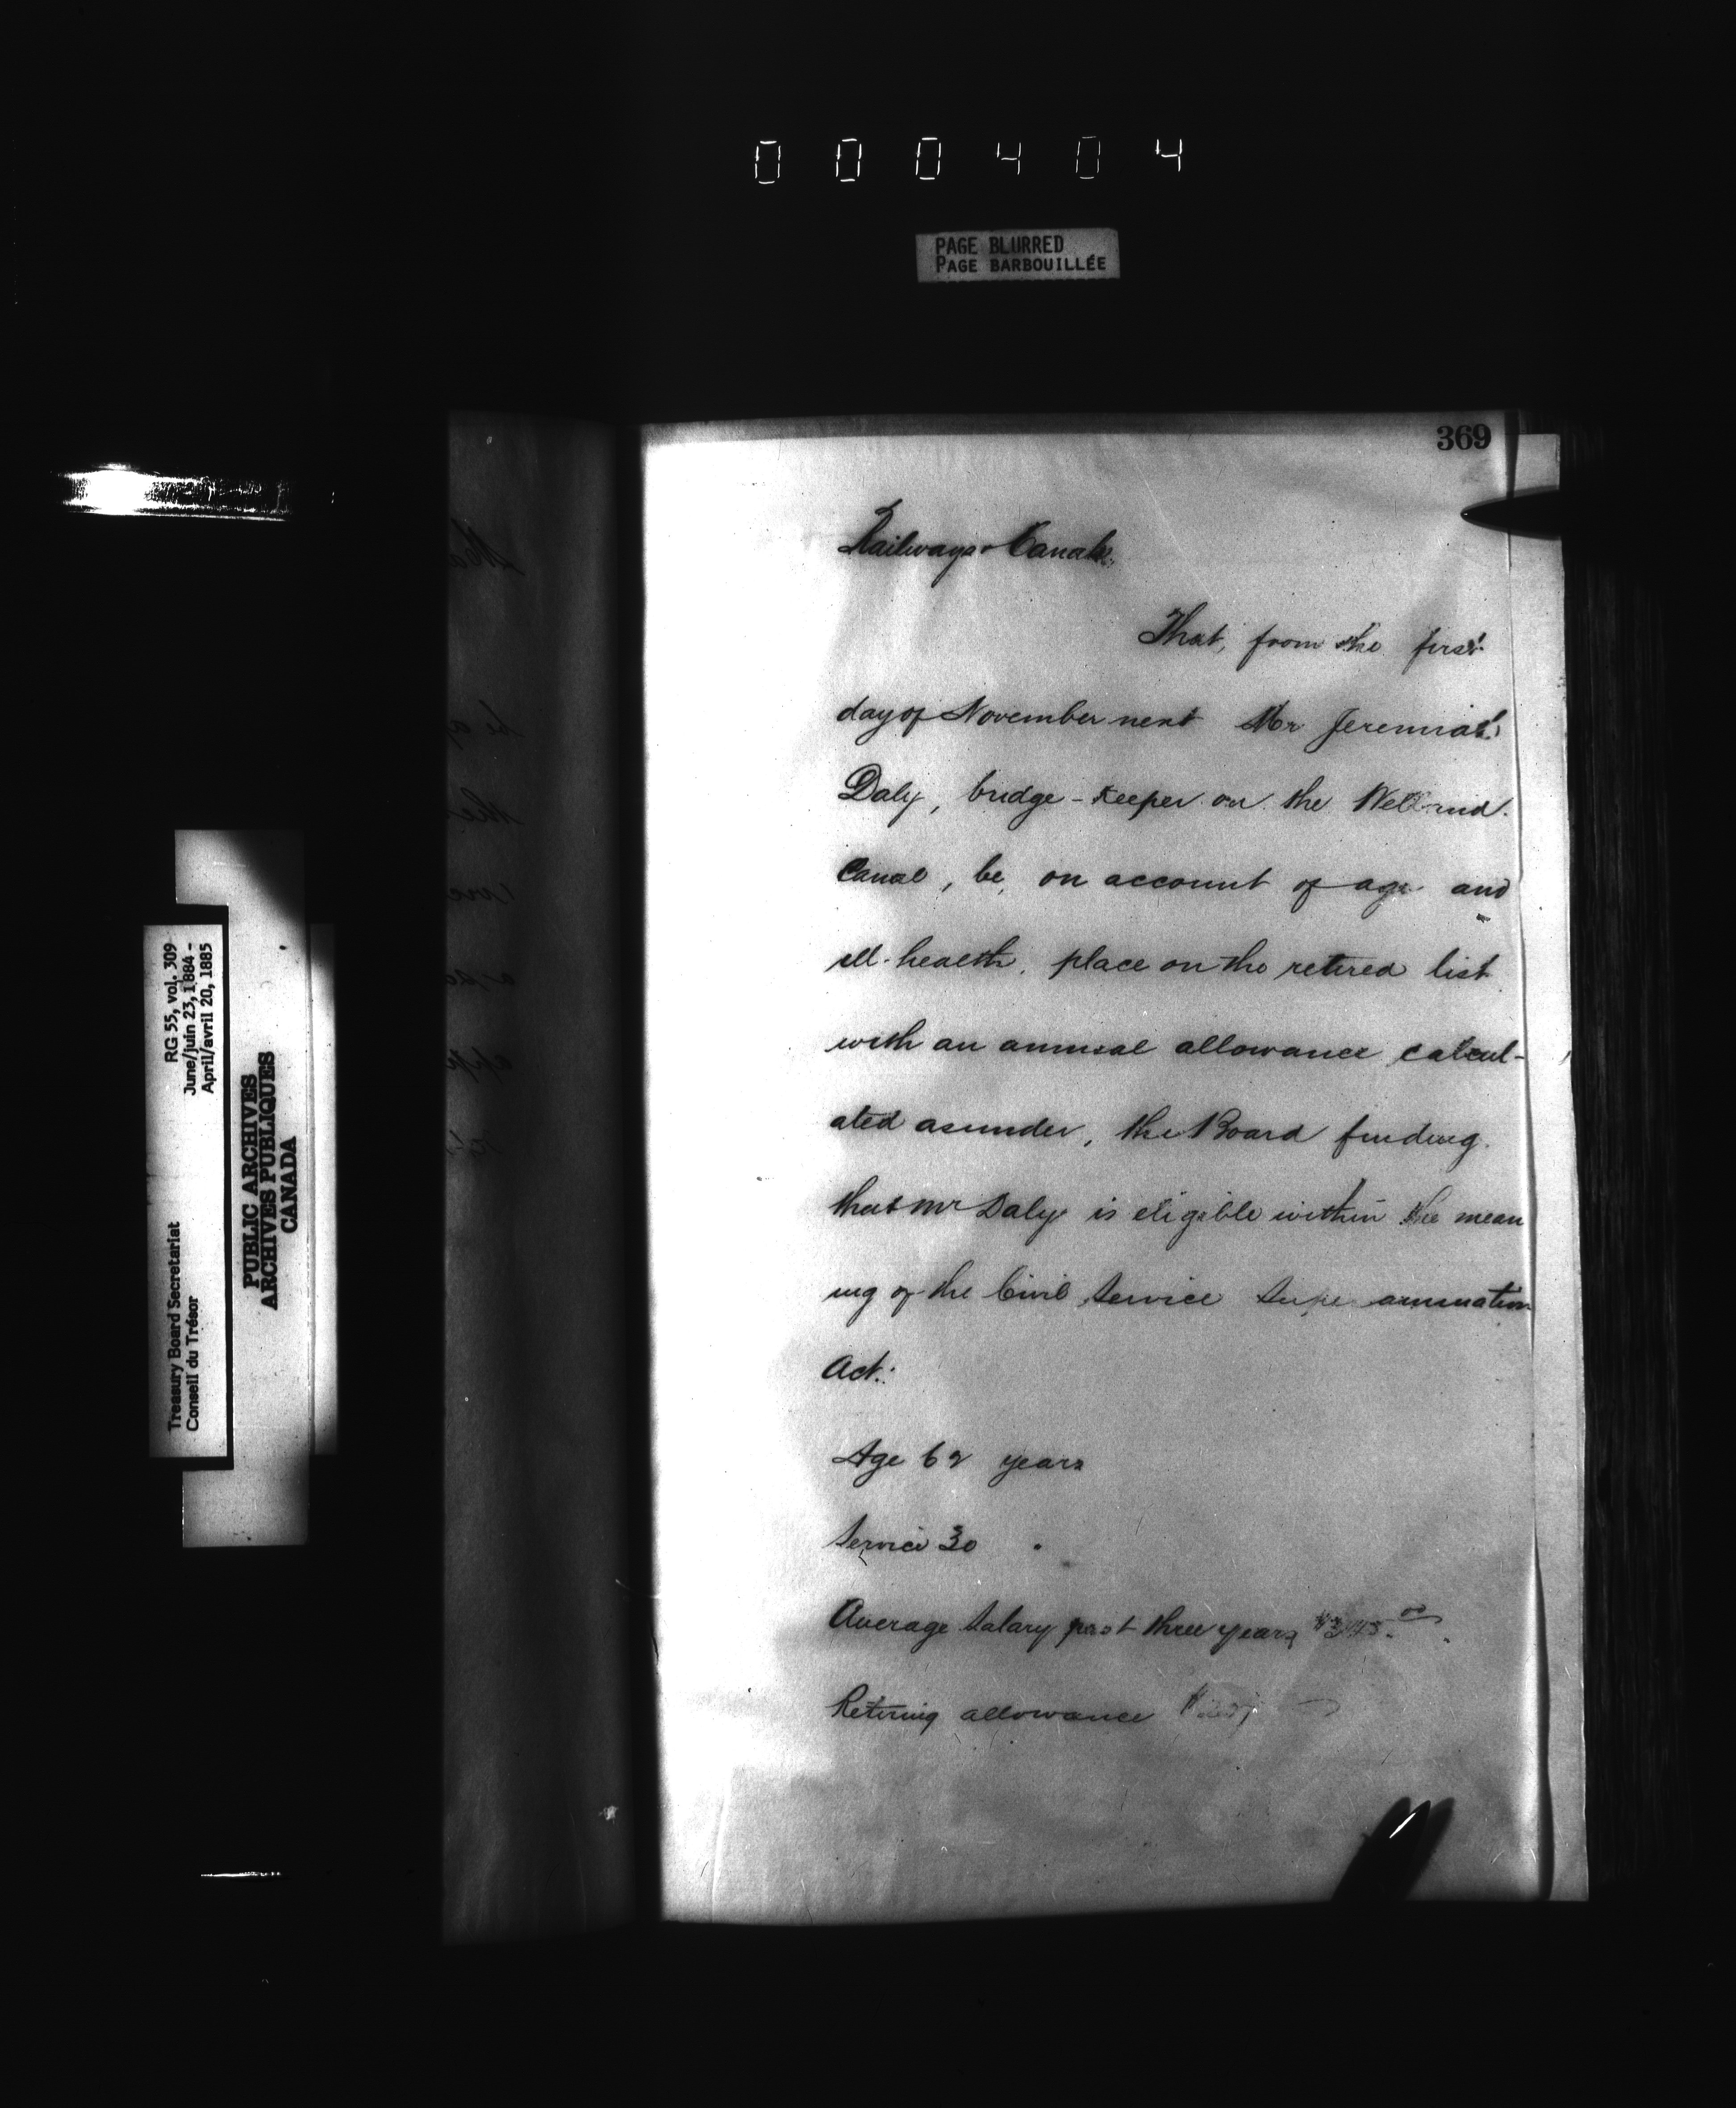 000404
PAGE BLURRED
PAGE BARBOUILLÉE
369
Railways & Canals.
That, from the first
day of November next Mr Jeremiah
Daly, bridge-keeper on the Welland
Canal, be, on account of age and
ill-health, place on the retired list
with an annual allowance calcul-
ated as under, the Board finding
that Mr Daly is eligible within the mean
ing of the Civil Service Superannuation
Act:
Age 62 years
Service 30 "
Average Salary past three years
Retiring allowance
RG 55, vol. 309
June/juin 23, 1884 -
April/avril 20, 1885
Treasury Board Secretariat
Conseil du Trésor
PUBLIC ARCHIVES
ARCHIVES PUBLIQUES
CANADA